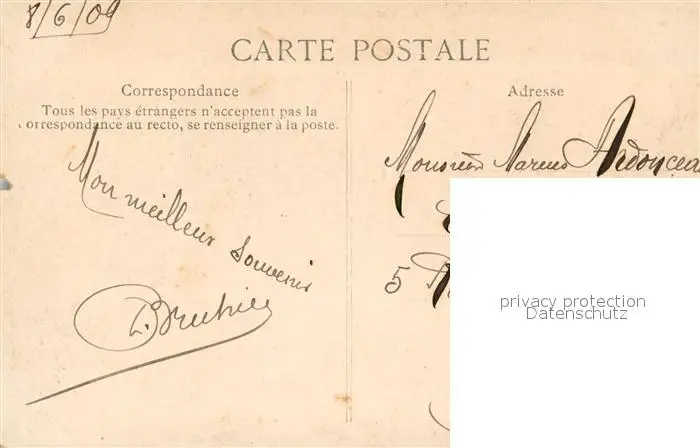 8/6/09
CARTE POSTALE
Correspondance
Tous les pays étrangers n'acceptent pas la
orrespondance au recto, se renseigner à la poste.
Mon meilleur souvenir
Adresse
Monsieur Marcus
5
privacy protection
Datenschutz